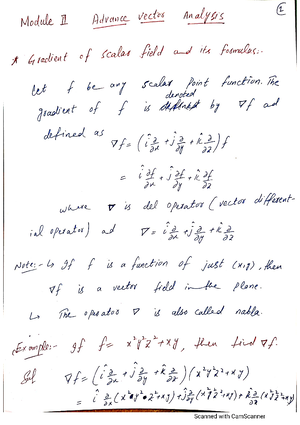 ①
Module II Advance vector Analysis
* Gradient of scalar field and its formulas:-
Let f be any scalar point function. The
gradient of f is denoted by ∇f ad
defined as
∇f = (î ∂/∂x + ĵ ∂/∂y + k̂ ∂/∂z) f
= î ∂f/∂x + ĵ ∂f/∂y + k̂ ∂f/∂z
where ∇ is del operator (vector different-
ial operator) ad ∇ = î ∂/∂x + ĵ ∂/∂y + k̂ ∂/∂z
Note:- ↳ If f is a function of just (x,y), then
∇f is a vector field in the plane.
↳ The operator ∇ is also called nabla.
Example:- If f = x²y²z² + xy, then find ∇f.
Sol ∇f = (î ∂/∂x + ĵ ∂/∂y + k̂ ∂/∂z) (x²y²z² + xy)
= î ∂/∂x (x²y²z² + xy) + ĵ ∂/∂y (x²y²z² + xy) + k̂ ∂/∂z (x²y²z² + xy)
Scanned with CamScanner